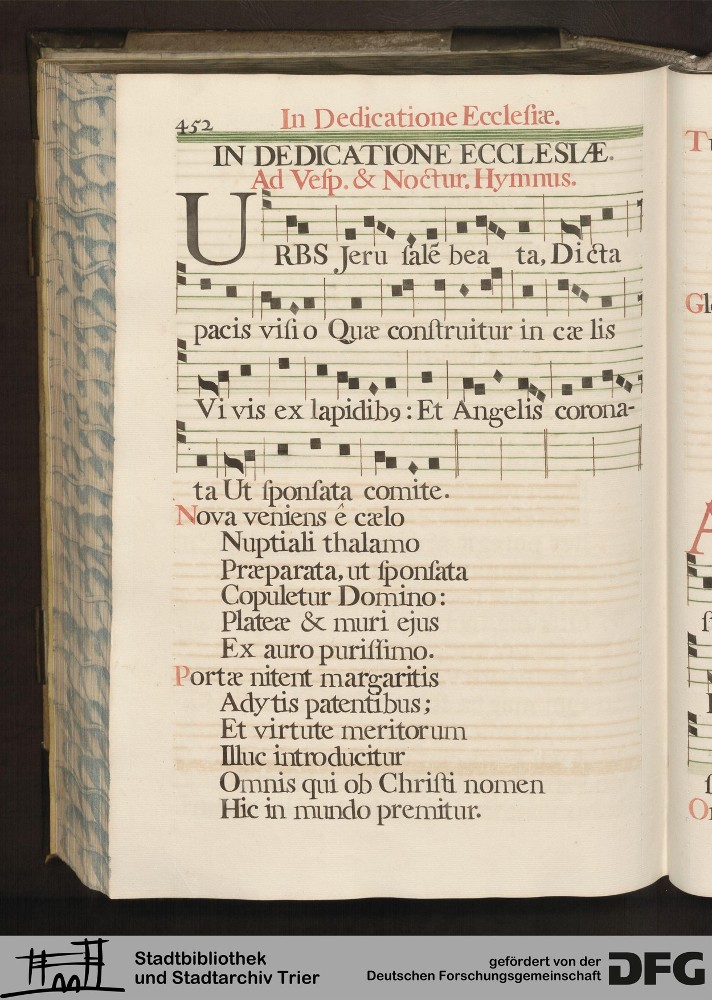 452
In Dedicatione Eccleſiæ.
IN DEDICATIONE ECCLESIÆ.
Ad Veſp. & Noctur. Hymnus.
URBS Jeru ſalẽ bea ta, Dicta
pacis viſi o Quæ conſtruitur in cæ lis
Vi vis ex lapidib9 : Et Angelis corona-
ta Ut ſponſata comite.
Nova veniens ê cælo
Nuptiali thalamo
Præparata, ut ſponſata
Copuletur Domino:
Plateæ & muri ejus
Ex auro puriſſimo.
Portæ nitent margaritis
Adytis patentibus;
Et virtute meritorum
Illuc introducitur
Omnis qui ob Chriſti nomen
Hic in mundo premitur.
Stadtbibliothek
und Stadtarchiv Trier
gefördert von der
Deutschen Forschungsgemeinschaft
DFG